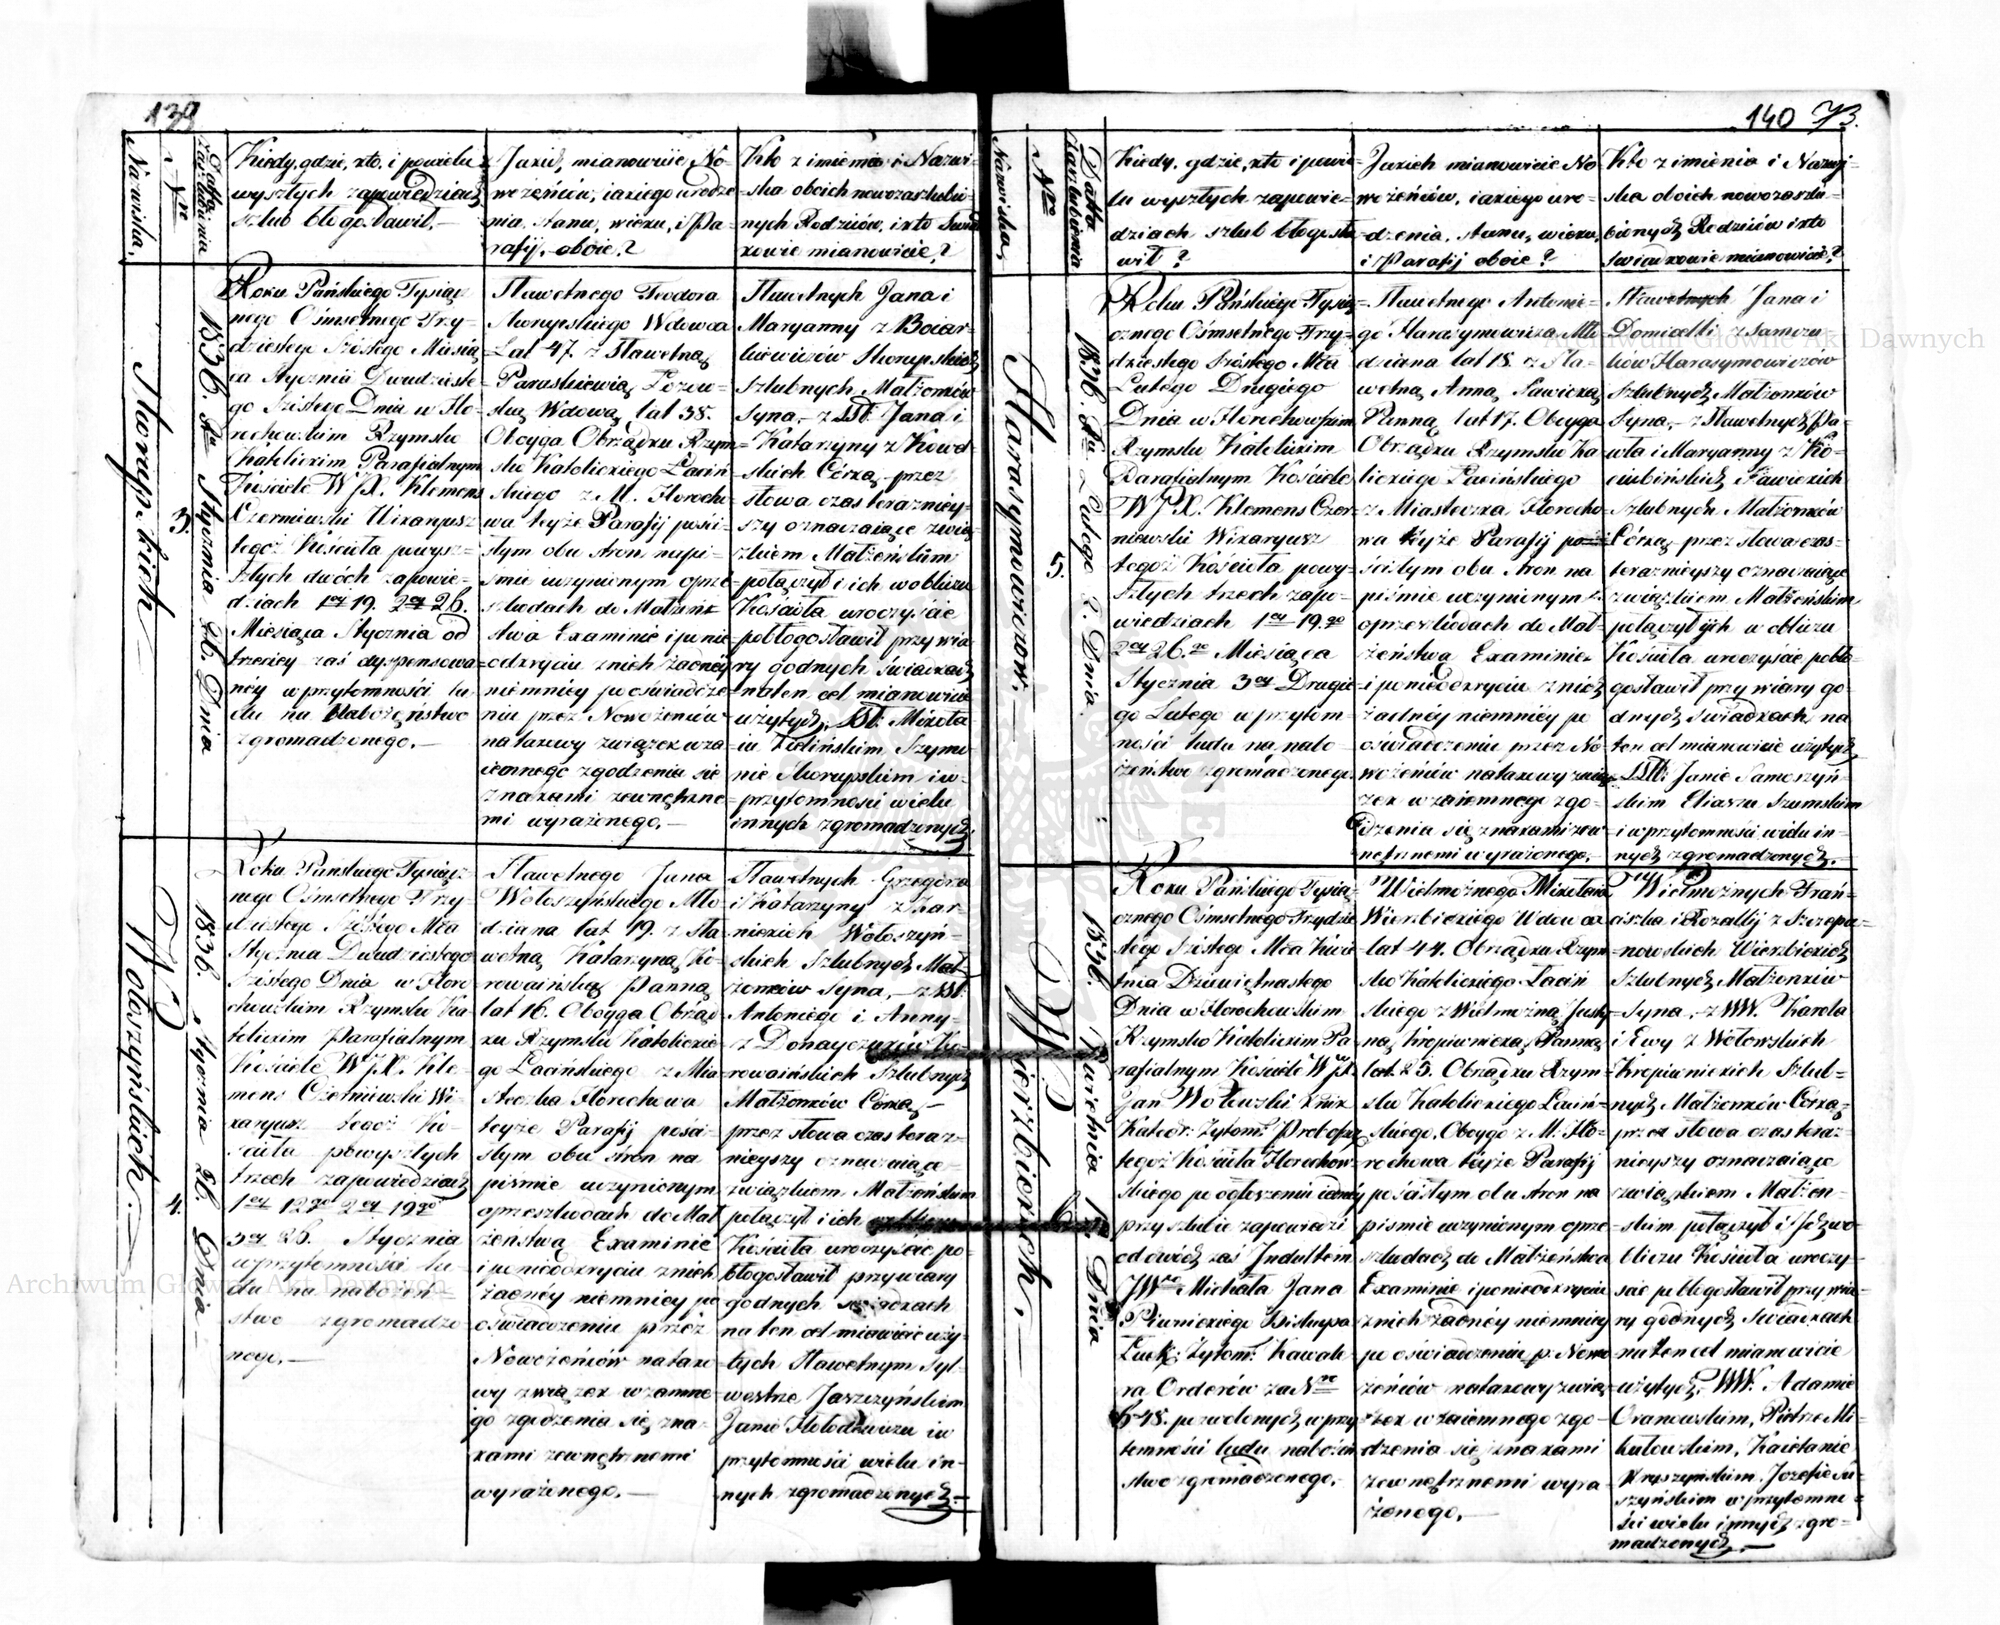 139
Nazwiska.
Nro
Datta zaślubienia
Kiedy, gdzie, kto, i powielu
wyszłych zapowiedziach
szlub błogosławił.—
Jakich, mianowicie No-
wożeńców, iakiego urodze-
nia, stanu, wieku, i Pa-
rafij, oboie?
Kto z imienia i Nazwi-
ska oboich nowozaszlubio-
nych Rodziców, i kto Świad-
kowie mianowicie?
Skorupskich
3.
1836. Ru Stycznia 26. Dnia
Roku Pańskiego Tysiącz-
nego Ośmsetnego Trzy-
dziestego Szóstego Miesią-
ca Stycznia Dwudzieste-
go Szóstego Dnia w Ho-
rochowskim Rzymsko
Katolickim Parafialnym
Kościele WJX. Klemens
Czerniewski Wikaryusz
tegoż Kościoła powysz-
szłych dwóch zapowie-
dziach 1ey 19. 2ey 26.
Miesiąca Stycznia od
trzeciey zaś dyspensowa-
ney w przytomności lu-
du na Nabożeństwo
zgromadzonego.—
Sławetnego Teodora
Skorupskiego Wdowca
Lat 47. z Sławetną
Paraskiewią Łozow-
ską Wdową, lat 38.
Oboyga Obrządku Rzym-
sko Katolickiego Łaciń-
skiego z M. Horocho-
wa teyże Parafij pości-
słym obu stron na pi-
śmie uczynionym oprze-
szkodach do Małżeń-
stwa Examinie i po nie
odkryciu z nich żadney
niemniey po oświadcze-
niu przez Nowożeńców
na takowy związek wza-
iemnego zgodzenia się
znakami zewnętrzne-
mi wyrażonego.—
Sławetnych Jana i
Maryanny z Boiar-
kiewiczów Skorupskich
Szlubnych Małżonków
Syna,—z SS. Jana i
Katarzyny z Kowal-
skich Córką, przez
słowa czas teraźniey-
szy oznaczaiące zwią-
zkiem Małżeńskim
połączył i ich w obliczu
Kościoła uroczyście
pobłogosławił przy wia-
ry godnych Świadkach
na ten cel mianowicie
użytych, SS. Mikoła-
iu Zielińskim, Szymo-
nie Skorupskim i w
przytomności wielu
innych zgromadzonych.
Wołoszyńskich.
4.
1836. Stycznia 26. Dnia
Roku Pańskiego Tysiącz-
nego Ośmsetnego Trzy-
dziestego Szóstego Mca
Stycznia Dwudziestego
Szóstego Dnia w Horo-
chowskim Rzymsko Ka-
tolickim Parafialnym
Kościele WJX. Kle-
mens Czerniewski Wi-
karyusz tegoż Ko-
ścioła powyszłych
trzech zapowiedziach
1ey 12go 2ey 19go
3ey 26. Stycznia
w przytomności lu-
du na nabożeń-
stwo zgromadzo-
nego.—
Sławetnego Jana
Wołoszyńskiego Mło-
dziana lat 19. z Sła-
wetną Katarzyną Ko-
rowaińską Panną
lat 16. Oboyga Obrząd-
ku Rzymsko Katolickie-
go Łacińskiego z Mia-
steczka Horochowa
teyże Parafij pości-
słym obu stron na
piśmie uczynionym
oprzeszkodach do Mał-
żeństwa Examinie
i po nieodkryciu z nich
żadney niemniey po
oświadczeniu przez
Nowożeńców na tako-
wy związek wzaimne-
go zgodzenia się zna-
kami zewnętrznemi
wyrażonego.—
Sławetnych Grzegorza
i Katarzyny z Kar-
nickich Wołoszyń-
skich Szlubnych Mał-
żonków Syna,— z SS.
Antoniego i Anny
z Donayczuków Ko-
rowaińskich Szlubnych
Małżonków Córką—
przez słowa czas teraz-
nieyszy oznaczaiące
związkiem Małżeńskim
połączył i ich w obliczu
Kościoła uroczyście po-
błogosławił przy wiary
godnych świadkach
na ten cel mianowicie uży-
tych Sławetnym Syl-
westrze Jaszczyńskim
Janie Hołodkiewiczu i w
przytomności wielu in-
nych zgromadzonych.—
140 73.
Nazwiska
Nro
Datta zaszlubienia
Kiedy, gdzie, kto i powie-
lu wyszłych zapowie-
dziach szlub błogosła-
wił?
Jakich mianowicie No-
wożeńców, iakiego uro-
dzenia, stanu, wieku,
i Parafij oboie?
Kto z imienia i Nazwi-
ska oboich nowozaszlu-
bionych Rodziców i kto
Świadkowie mianowicie?
Harasymowiczów.
5.
1836. Ru Lutego 2. Dnia.
Roku Pańskiego Tysią-
cznego Ośmsetnego Trzy-
dziestego Szóstego Mca
Lutego Drugiego
Dnia w Horochowskim
Rzymsko Katolickim
Parafialnym Kościele
WJX. Klemens Czer-
niewski Wikaryusz
tegoż Kościoła powy-
szłych trzech zapo-
wiedziach 1ey 19.go
2ey 26.go Miesiąca
Stycznia 3ey Drugie-
go Lutego w przytom-
ności ludu na nabo-
żeństwo zgromadzonego.
Sławetnego Antonie-
go Harasymowicza Mło-
dziana lat 18. z Sła-
wetną Anną Sawicką
Panną lat 17. Oboyga
Obrządku Rzymsko Ka-
tolickiego Łacińskiego
z Miasteczka Horocho-
wa teyże Parafij po
ścisłym obu stron na
piśmie uczynionym
oprzeszkodach do Mał-
żeństwa Examinie
i po nieodkryciu z nich
żadney niemniey po
oświadczeniu przez No-
wożeńców na takowy zwią-
zek wzaiemnego zgo-
dzenia się znakami zew-
nętrznemi wyrażonego.—
Sławetnych Jana i
Domicelli z Samczu-
ków Harasymowiczów
Szlubnych Małżonków
Syna,— z Sławetnych Pa-
wła i Maryanny z Ko-
ciubińskich Sawickich
Szlubnych Małżonków
Córką, przez słowa czas
teraznieyszy oznaczaiące
związkiem Małżeńskim
połączył ich w obliczu
Kościoła uroczyście pobło-
gosławił przy wiary go-
dnych Świadkach na
ten cel mianowicie użytych,
SS. Janie Samoszyń-
skim Eliaszu Szumskim
i w przytomności wielu in-
nych zgromadzonych.—
Wierzbickich.
6.
1836. Kwietnia 19. Dnia
Roku Pańskiego Tysią-
cznego Ośmsetnego Trzydzie-
stego Szóstego Mca Kwie-
tnia Dziewiętnastego
Dnia w Horochowskim
Rzymsko Katolickim Pa-
rafialnym Kościele WJX.
Jan Wołowski Kan:
Katedr: Żytom: Proboszcz
tegoż Kościoła Horochow-
skiego po ogłoszeniu iedney
przy szlubie zapowiedzi
od dwóch zaś Indultem
JWgo Michała Jana
Piwnickiego Biskupa
Łuck: Żytom: Kawale-
ra Orderów za Nro
648. pozwolonych w przy-
tomności ludu na nabożeń-
stwo zgromadzonego.—
Wielmożnego Mikołaia
Wierzbickiego Wdowca
lat 44. Obrządku Rzym-
sko Katolickiego Łaciń-
skiego z Wielmożną Justy-
ną Kropiwnicką Panną
lat 25. Obrządku Rzym-
sko Katolickiego Łaciń-
skiego. Oboygo z M. Ho-
rochowa teyże Parafij
po ścisłym obu stron na
piśmie uczynionym oprze-
szkodach do Małżeństwa
Examinie i po nieodkryciu
z nich żadney niemniey
po oświadczeniu p. Nowo-
żeńców na takowy zwią-
zek wzaiemnego zgo-
dzenia się znakami
zewnętrznemi wyra-
żonego.—
Wielmożnych Fran-
ciszka i Rozalij z Szczepa-
nowskich Wierzbickich
Szlubnych Małżonków
Syna,— z WW. Karola
i Ewy z Wołowskich
Kropiwnickich Szlub-
nych Małżonków Córką,
przez słowa czas teraz-
nieyszy oznaczaiące
związkiem Małżeń-
skim połączył i Ich w o-
bliczu Kościoła uroczy-
ście pobłogosławił przy wia-
ry godnych Świadkach
na ten cel mianowicie
użytych, WW. Adamie
Oranowskim, Piotrze Mi-
kułowskim, Kaietanie
Kryszyńskim, Jozefie Su-
szyńskim w przytomno-
ści wielu innych zgro-
madzonych.—
Archiwum Główne Akt Dawnych
Archiwum Główne Akt Dawnych